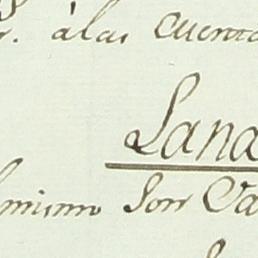 . àlas Cuenta
Lana
lmismo Son Va